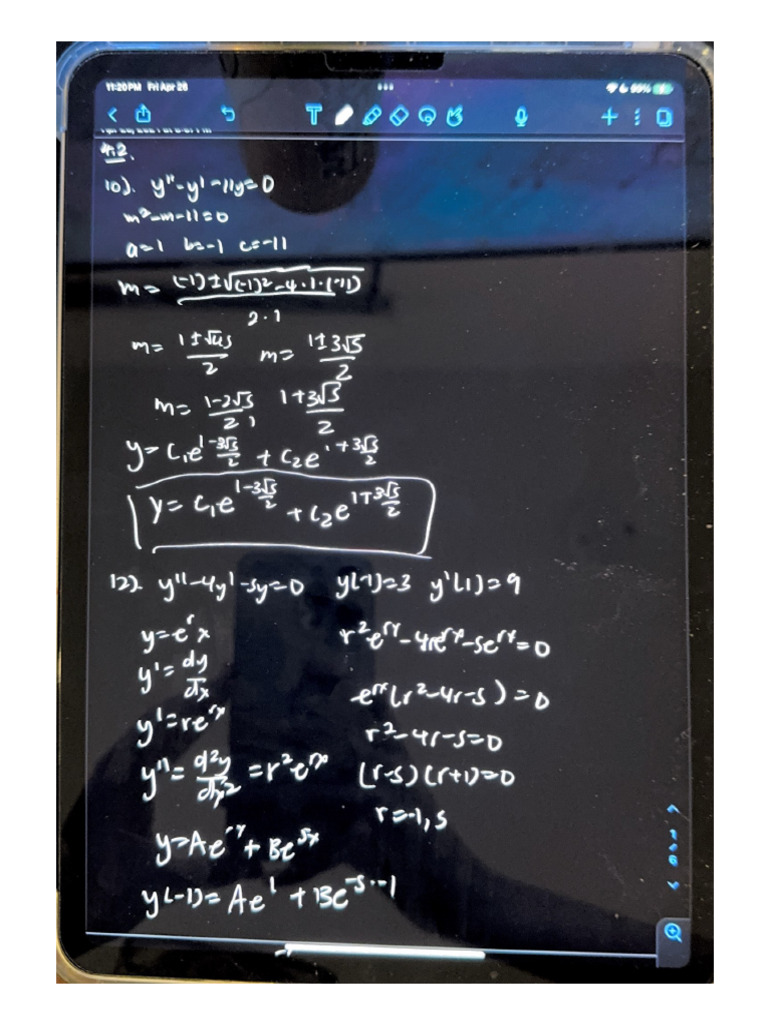 11:20PM Fri Apr 28
99%
4.2.
10). y''-y'-11y=0
m²-m-11=0
a=1 b=-1 c=-11
m= (-1)±√(-1)²-4·1·(-11)
2·1
m= 1±√45 / 2 m= 1±3√5 / 2
m= 1-3√5 / 2, 1+3√5 / 2
y= C₁e^1-3√5/2 + C₂e^1+3√5/2
y= C₁e^1-3√5/2 + C₂e^1+3√5/2
12). y''-4y'-5y=0 y(-1)=3 y'(1)=9
y=e^r x r²e^rx-4re^rx-5e^rx=0
y'= dy/dx
e^rx(r²-4r-5)=0
y'=re^rx
r²-4r-5=0
y''= d²y/dx² = r²e^rx (r-5)(r+1)=0
r=-1,5
y=Ae^-x + Be^5x
y(-1)= Ae^1 + Be^-5·-1